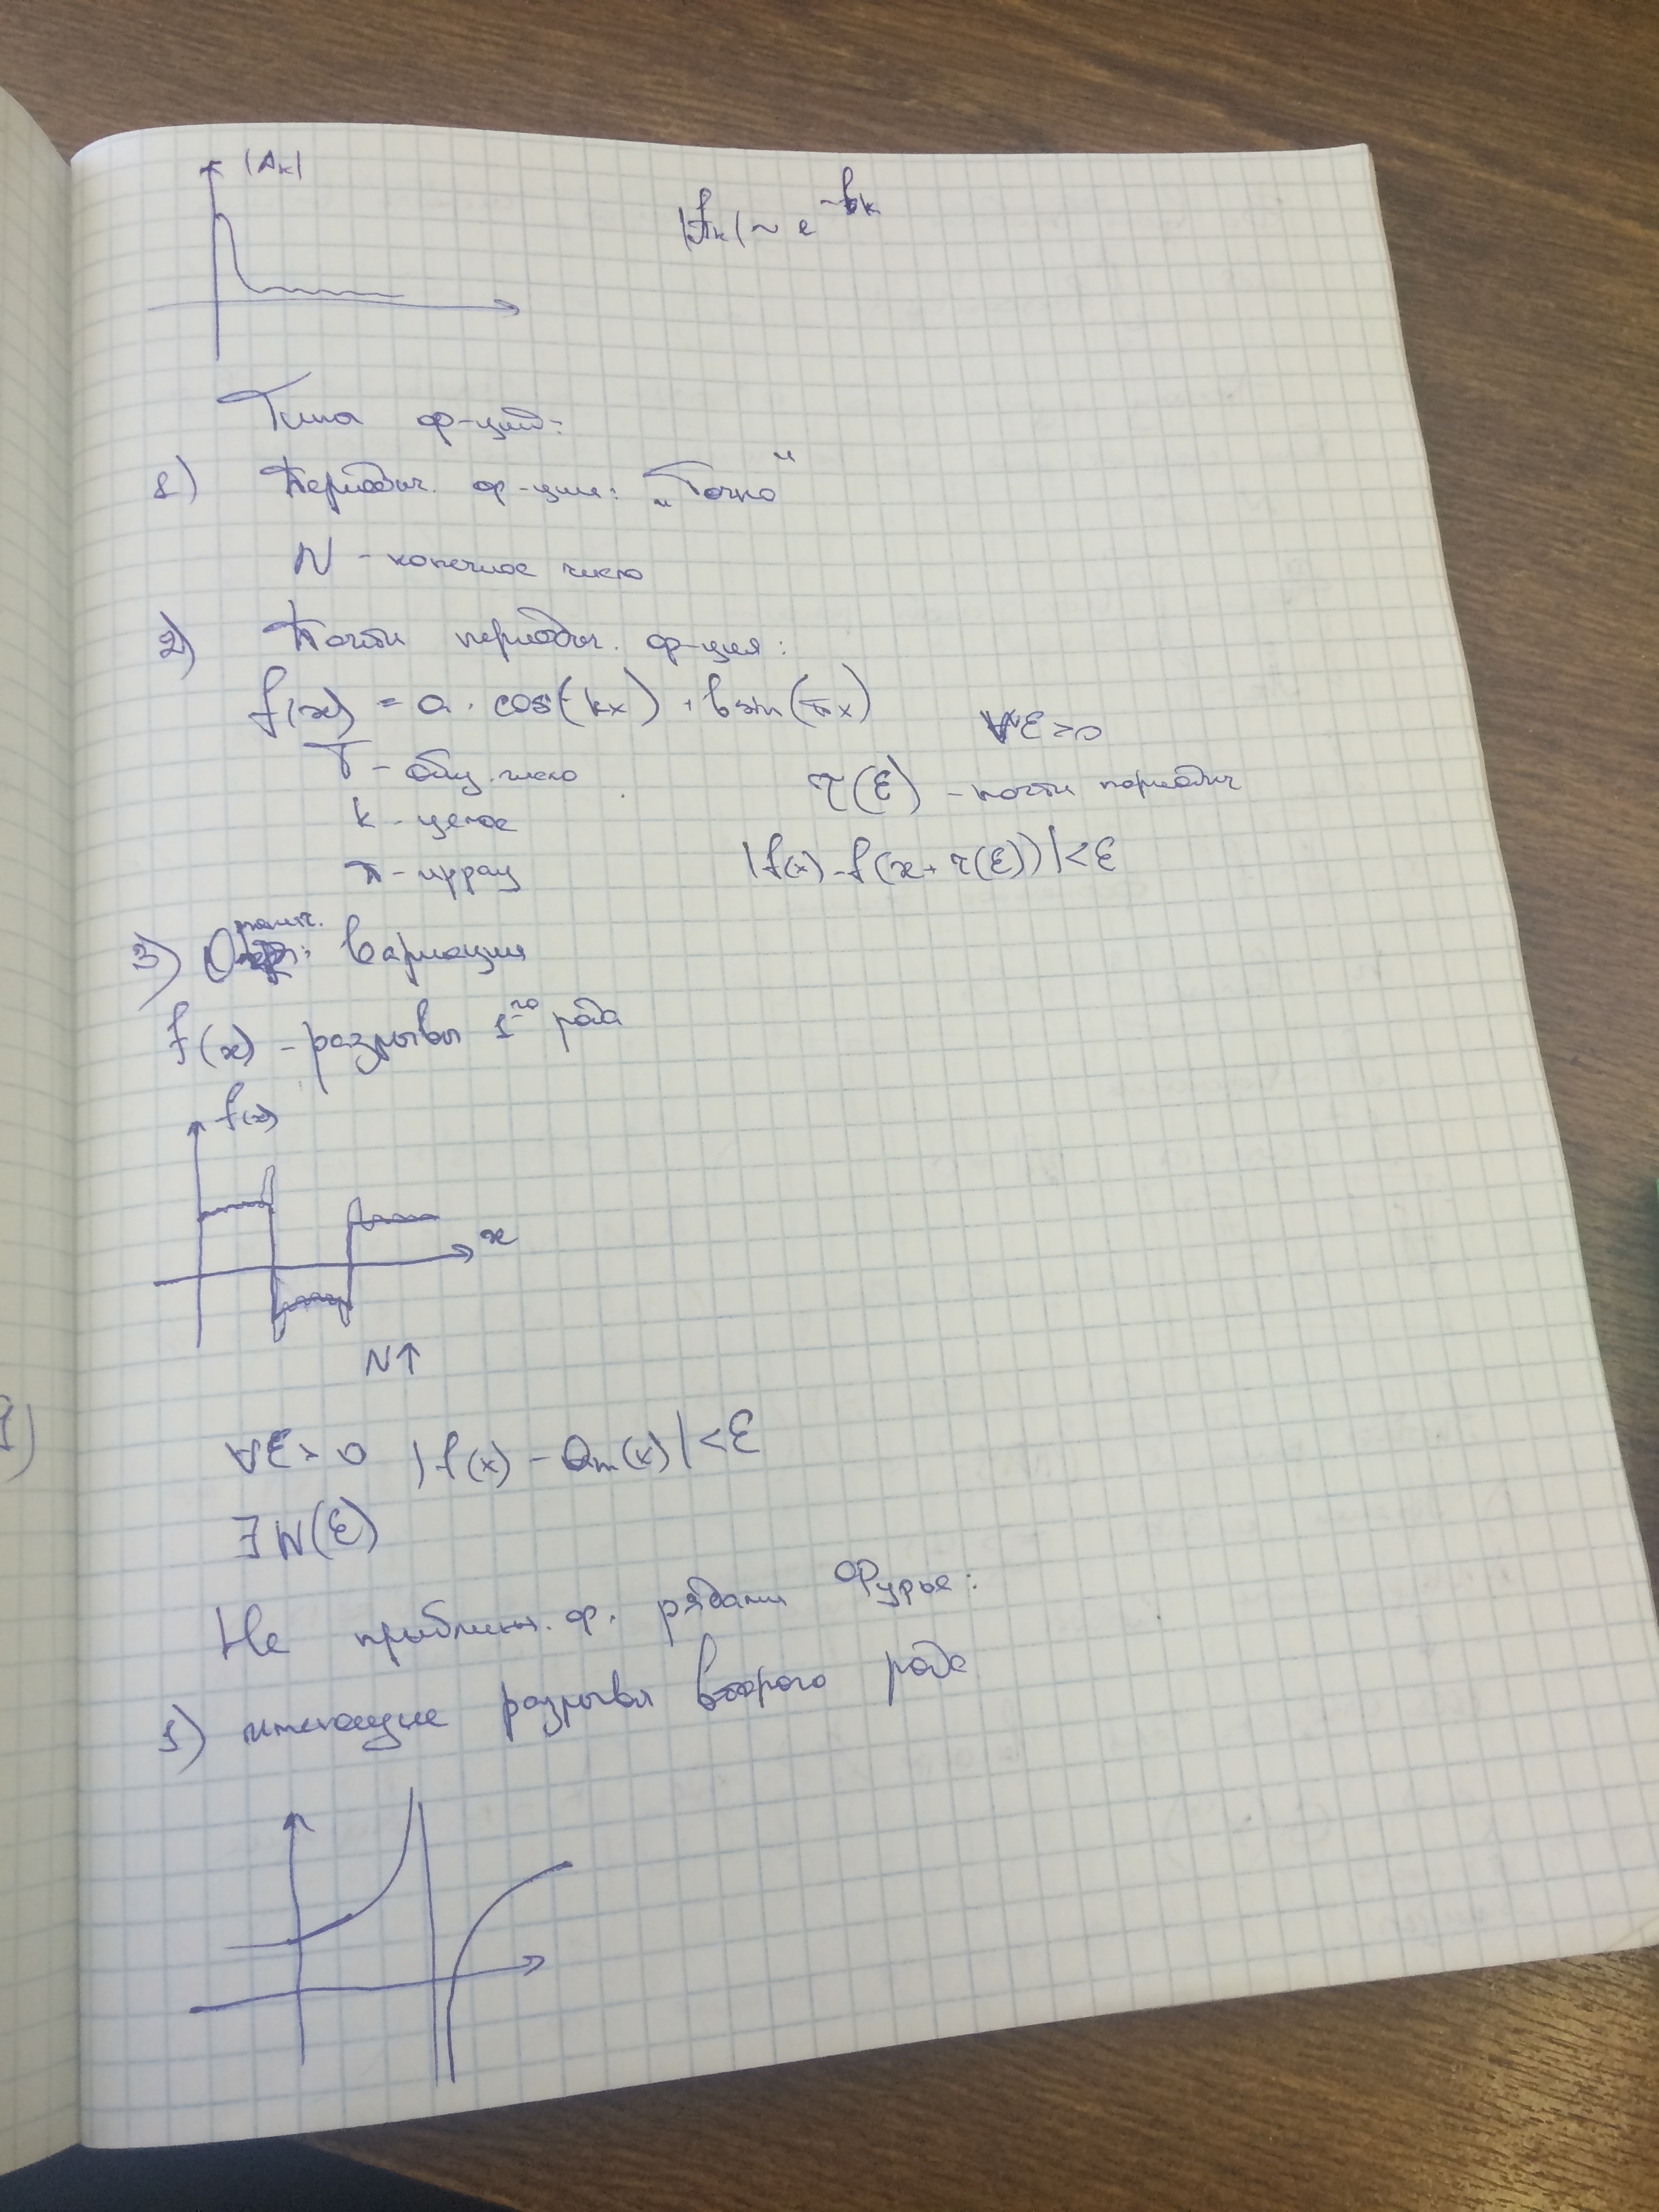 |Aₖ|
|Aₖ| ~ e^(-bk)
Типа ф-ций:
1) Периодич. ф-ция: „Точно"
N - конечное число
2) Почти периодич. ф-ция:
f(x) = a · cos(kx) + b sin(πx)
T - общ. число
k - целое
π - иррац
∀ε>0
τ(ε) - почти периодич
|f(x) - f(x + τ(ε))| < ε
3) Огранич. Вариация
f(x) - разрывы 1-го рода
f(x)
x
N↑
∀ε>0 |f(x) - Qₘ(x)| < ε
∃ N(ε)
Не приближ. ф. рядами Фурье:
1) имеющие разрывы второго рода